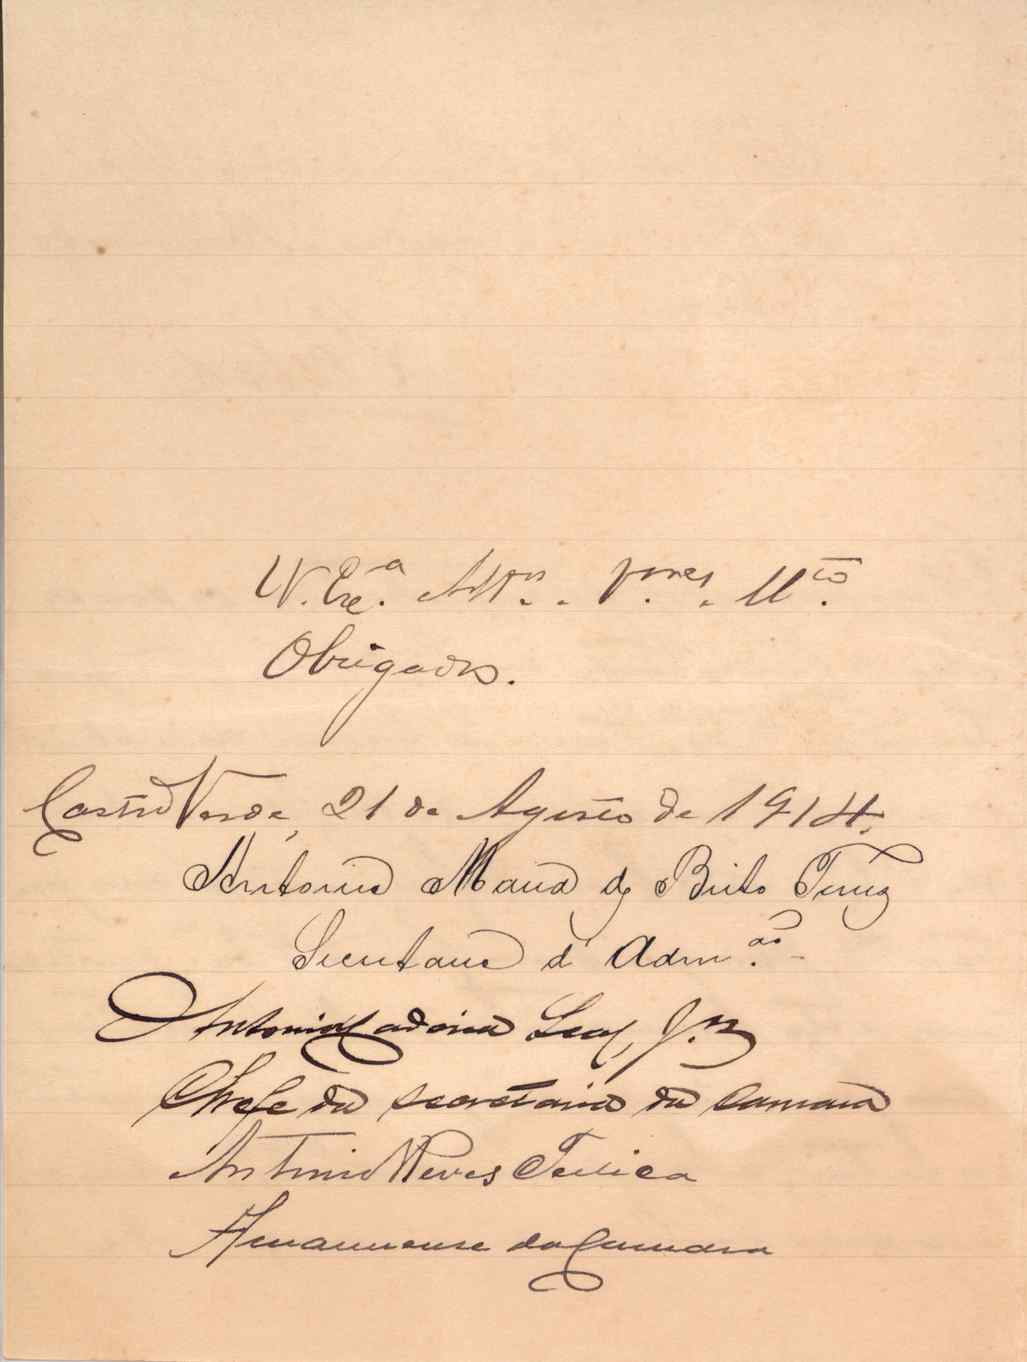 V. Exª. Attos. Vres. Mto.
Obrigados.
Castro Verde, 21 de Agosto de 1914.
Antonio Maria de Brito
Secretario d' Adm.ão
Antonio Leal, J.or
Chefe da secretaria da camara
Antonio Neves
Amanuense da Camara